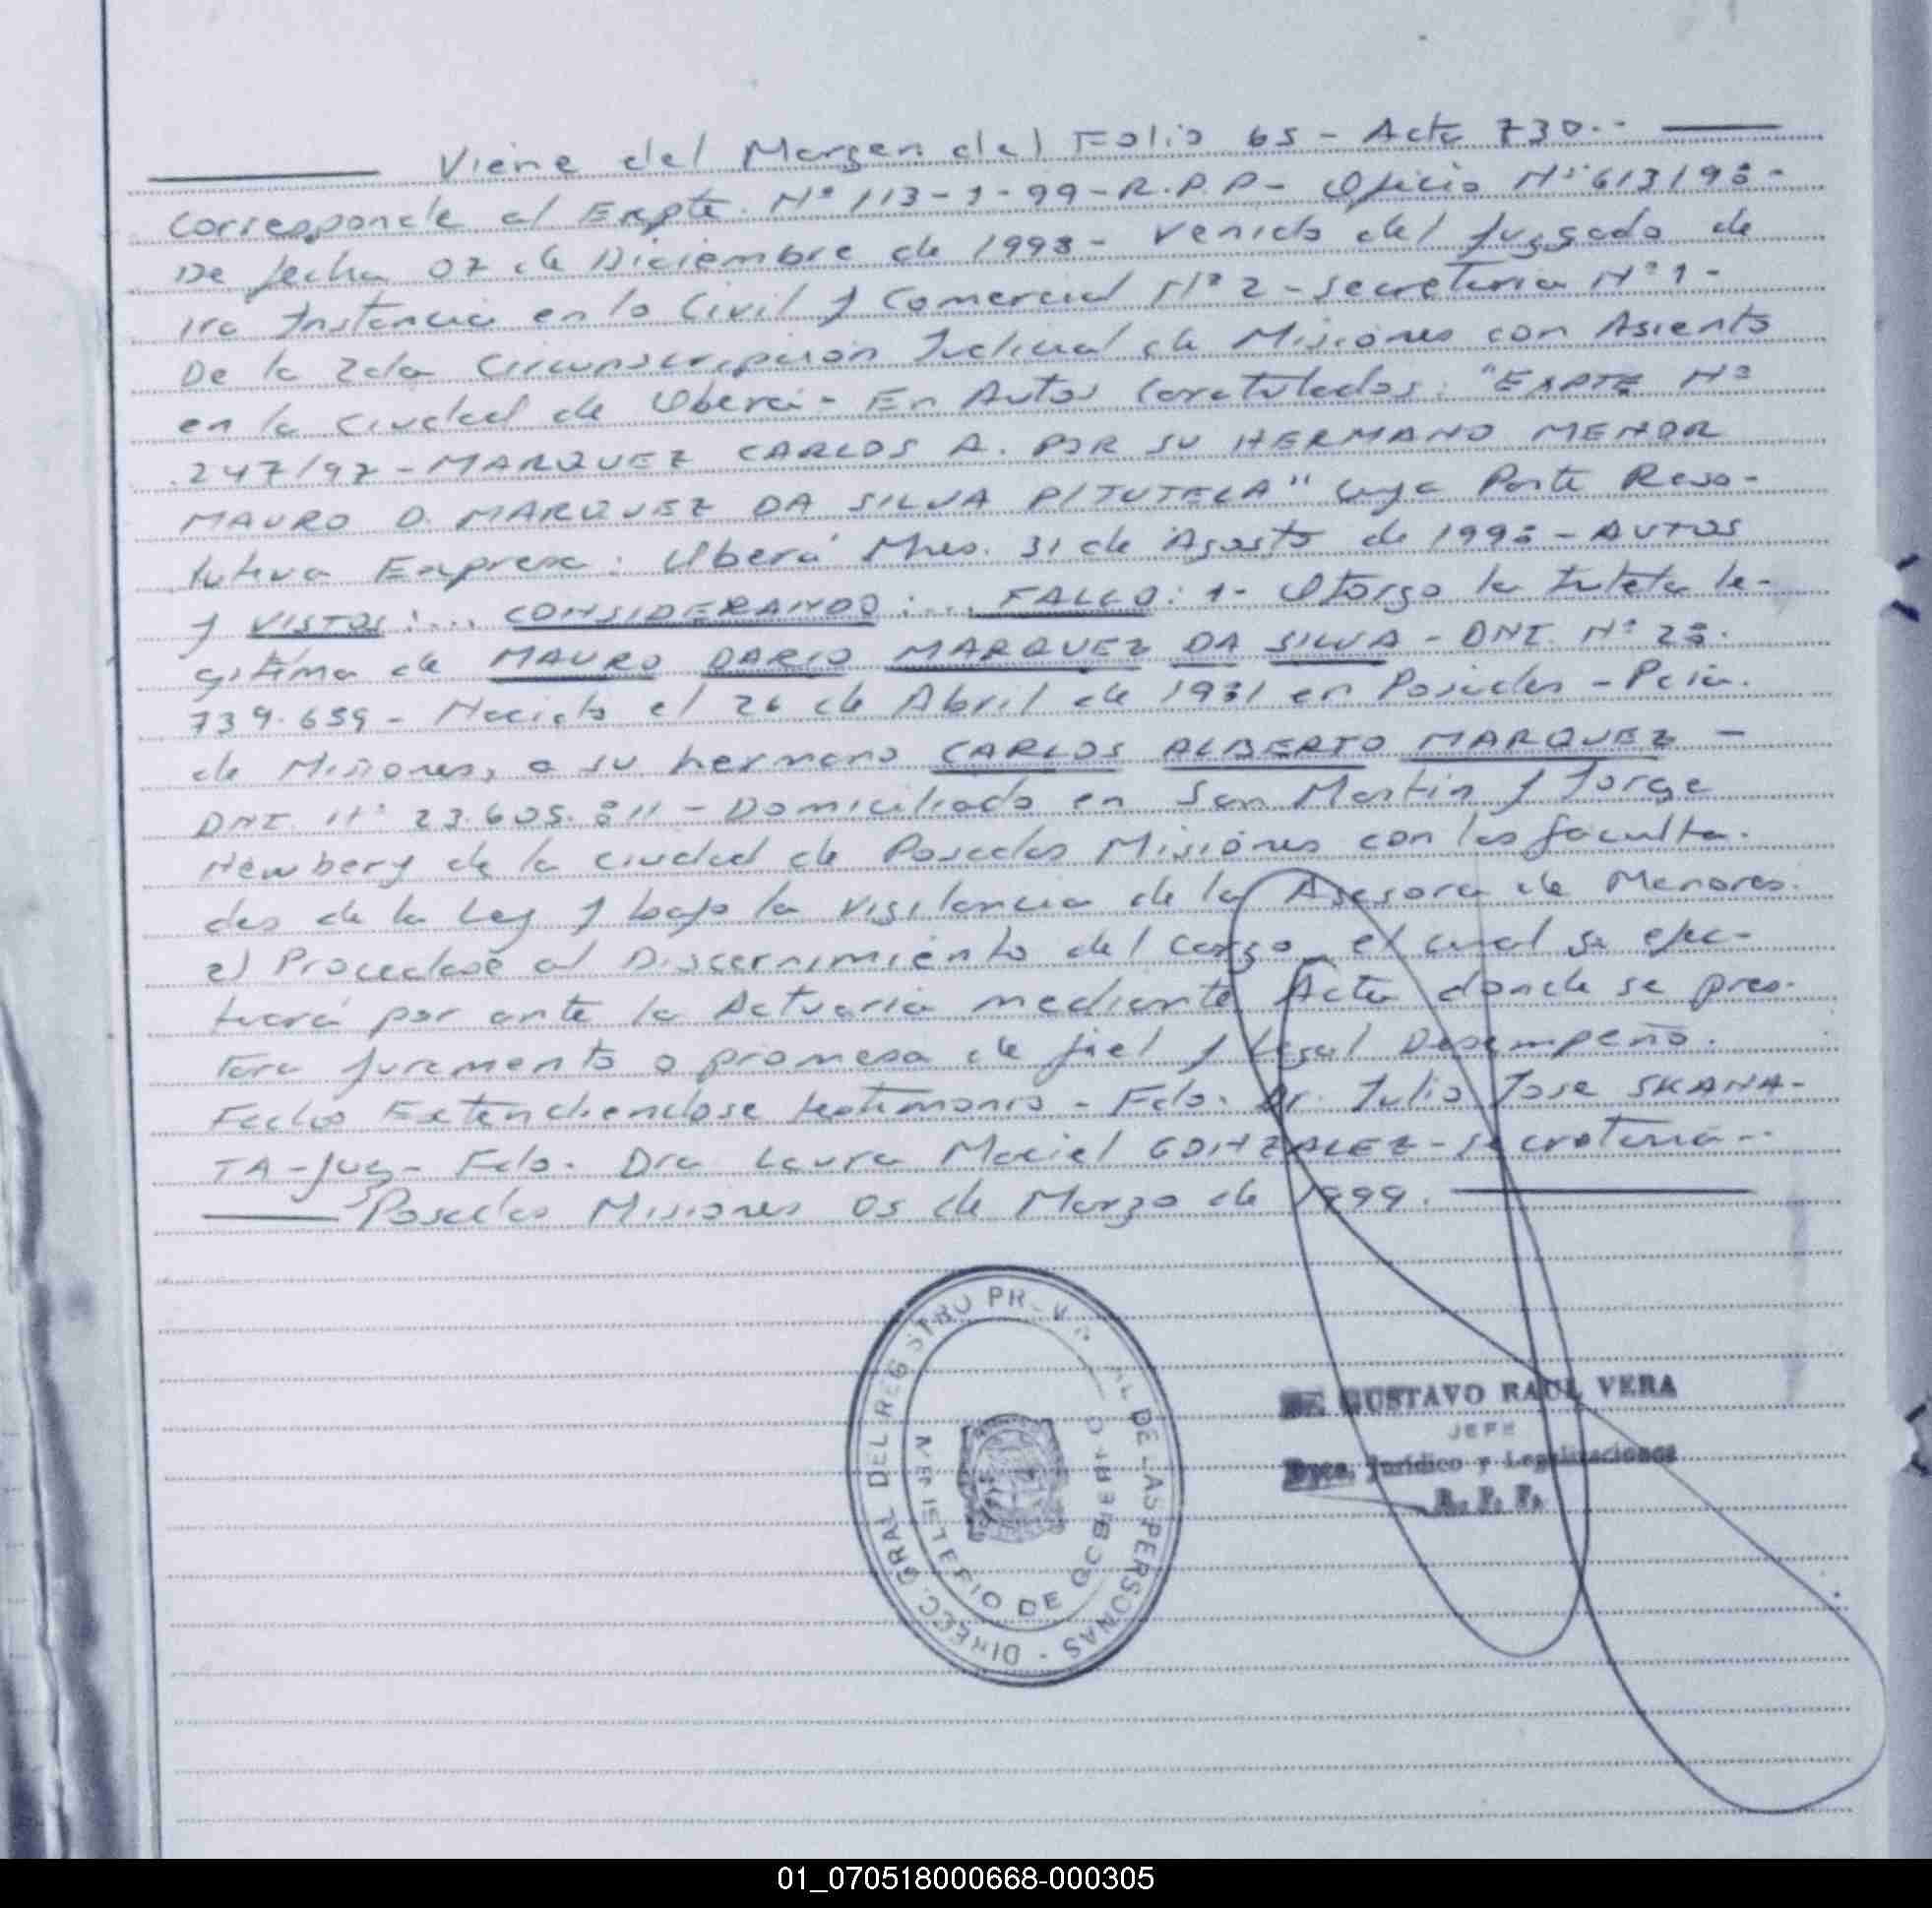 Viene del Margen del Folio 65 - Acta 730.-
Corresponde al Expte. Nº 113-1-99-R.P.P- Oficio Nº 613/98-
De fecha 07 de Diciembre de 1998- Venido del Juzgado de
1ra Instancia en lo Civil y Comercial Nº 2 - Secretaria Nº 1-
De la 2da Circunscripción Judicial de Misiones con Asiento
en la Ciudad de Oberá - En Autos Caratulados: "EXPTE Nº
247/97 - MARQUEZ CARLOS A. POR SU HERMANO MENOR
MAURO D. MARQUEZ DA SILVA P/TUTELA" Cuya Parte Reso-
lutiva Expresa: Oberá Mnes. 31 de Agosto de 1998 - AUTOS
y VISTOS:... CONSIDERANDO:... FALLO: 1- Otorgo la tutela le-
gitima de MAURO DARIO MARQUEZ DA SILVA - DNI. Nº 28.
739.659 - Nacido el 26 de Abril de 1981 en Posadas - Pcia.
de Misiones, a su hermano CARLOS ALBERTO MARQUEZ -
DNI. Nº 23.605.811 - Domiciliado en San Martin y Jorge
Newbery de la ciudad de Posadas Misiones con las faculta-
des de la Ley y bajo la vigilancia de la Asesora de Menores.
2) Procedase al Discernimiento del Cargo el cual se efec-
tuará por ante la Actuaria mediante Acta donde se pres-
tara juramento o promesa de fiel y Legal Desempeño.
Fecho Extendiendose testimonio - Fdo. Dr. Julio Jose SKANA-
TA - Juez - Fdo. Dra Laura Maciel GONZALEZ - Secretaria -.
Posadas Misiones 05 de Marzo de 1999.
DIRECC. GRAL DEL REGISTRO PROVINCIAL DE LAS PERSONAS
MINISTERIO DE GOBIERNO
GUSTAVO RAUL VERA
JEFE
Dpto. Jurídico y Legalizaciones
R. P. P.
01_070518000668-000305